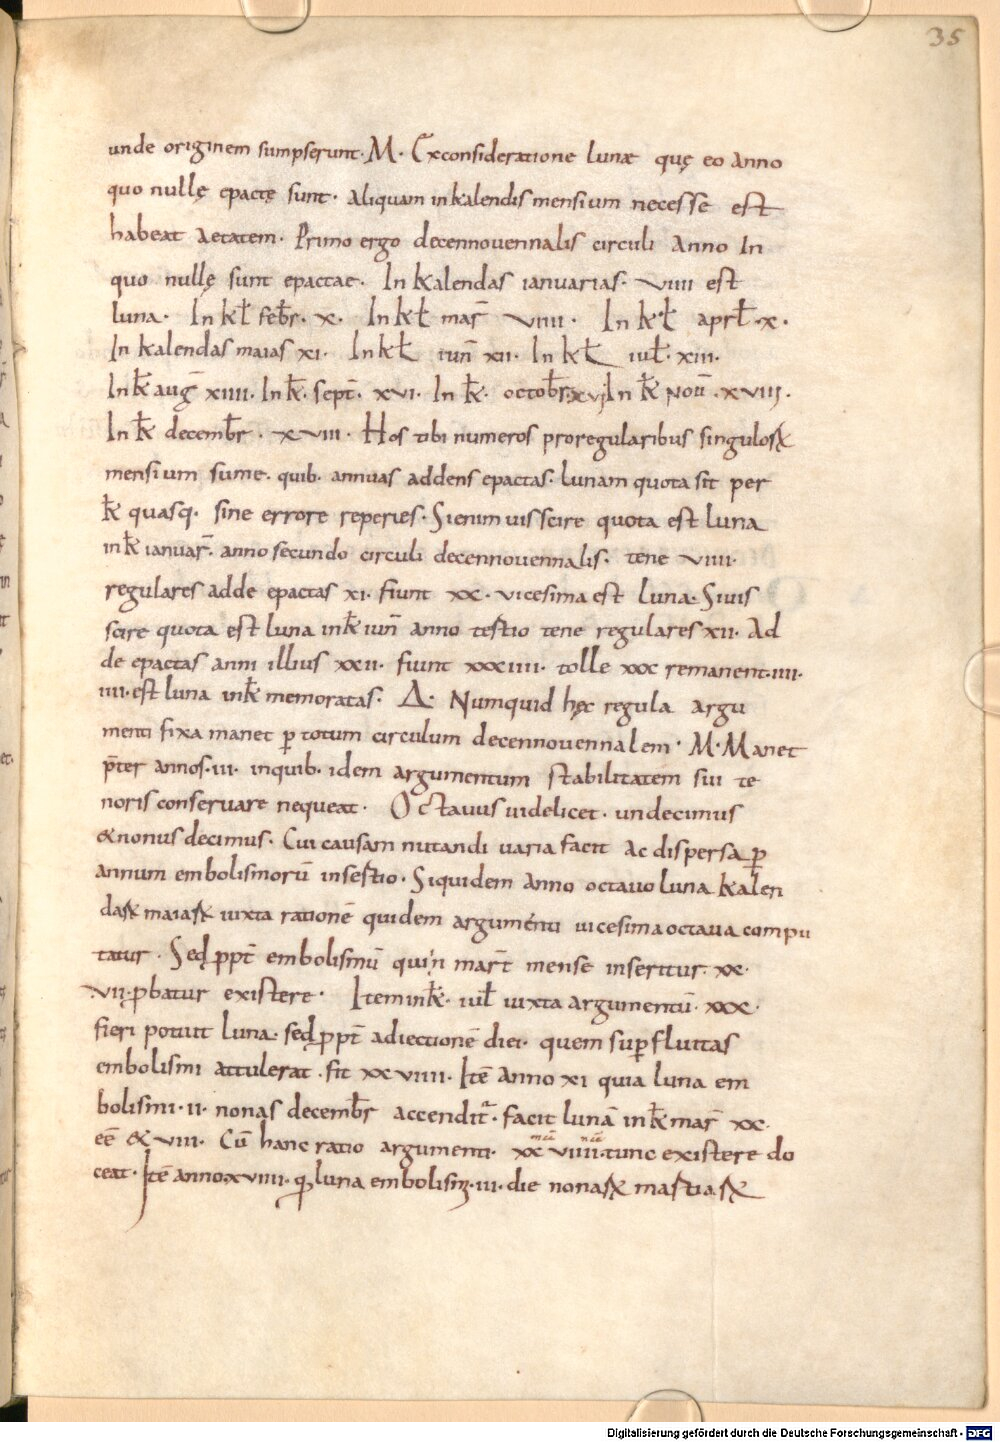 35
unde originem sumpserunt. M. Exconsideratione lunæ quę eo anno
quo nullę epactę sunt. aliquam inkalendis mensium necesse est
habeat aetatem. Primo ergo decennouennalis circuli anno In
quo nullę sunt epactae. In kalendas ianuarias. viiii est
luna. In kƚ feb̄r. x. In kƚ mar̄ viiii. In kƚ aprƚ. x.
In kalendas maias xi. In kƚ iun̄ xii. In kƚ iuƚ. xiii.
In k̄ auḡ xiiii. In k̄. sept̄. xvi. In k̄. octob̄r. xvi In k̄ Nou̅. xviii.
In k̄ decemb̄r. xviii. Hos tibi numeros proregularibus singulos
mensium sume. quib. annuas addens epactas. lunam quota sit per
k̄ quasq. sine errore reperies. Si enim uis scire quota est luna
in k̄ ianuar̄. anno secundo circuli decennouennalis. tene viiii.
regulares adde epactas xi. fiunt xx. vicesima est luna. Siuis
scire quota est luna in k̄ iun̄ anno tertio tene regulares xii. Ad
de epactas anni illius xxii. fiunt xxxiiii. tolle xxx remanent. iiii.
iiii. est luna in k̄ memoratas. Δ. Numquid hęc regula argu
menti fixa manet ꝑ totum circulum decennouennalem. M. Manet
p̄ter annos. iii. inquib. idem argumentum stabilitatem sui te
noris conseruare nequeat. Octauus uidelicet. undecimus
& nonus decimus. Cui causam nutandi uaria facit ac dispersa ꝑ
annum embolismorū insertio. Siquidem anno octauo luna kalen
das maias iuxta rationē quidem argumenti uicesima octaua compu
tatur. Sed ꝓpt̄ embolismū qui in mart̄ mense inseritur. xx.
vii. ꝓbatur existere. Item in k̄. iuƚ iuxta argumentū. xxx.
fieri potuit luna. sed ꝓpt̄ adiectionē diei. quem suꝑfluitas
embolismi attulerat. fit xxviiii. Itē anno xi quia luna em
bolismi. ii. nonas decemb̄r accendit̄. facit lunā in k̄ mar̄ xx.
eē & viii. Cū hanc ratio argumenti. xx viiii. tunc existere do
ceat. Itē anno xviiii. luna embolism. iii. die nonas martias
Digitalisierung gefördert durch die Deutsche Forschungsgemeinschaft - DFG